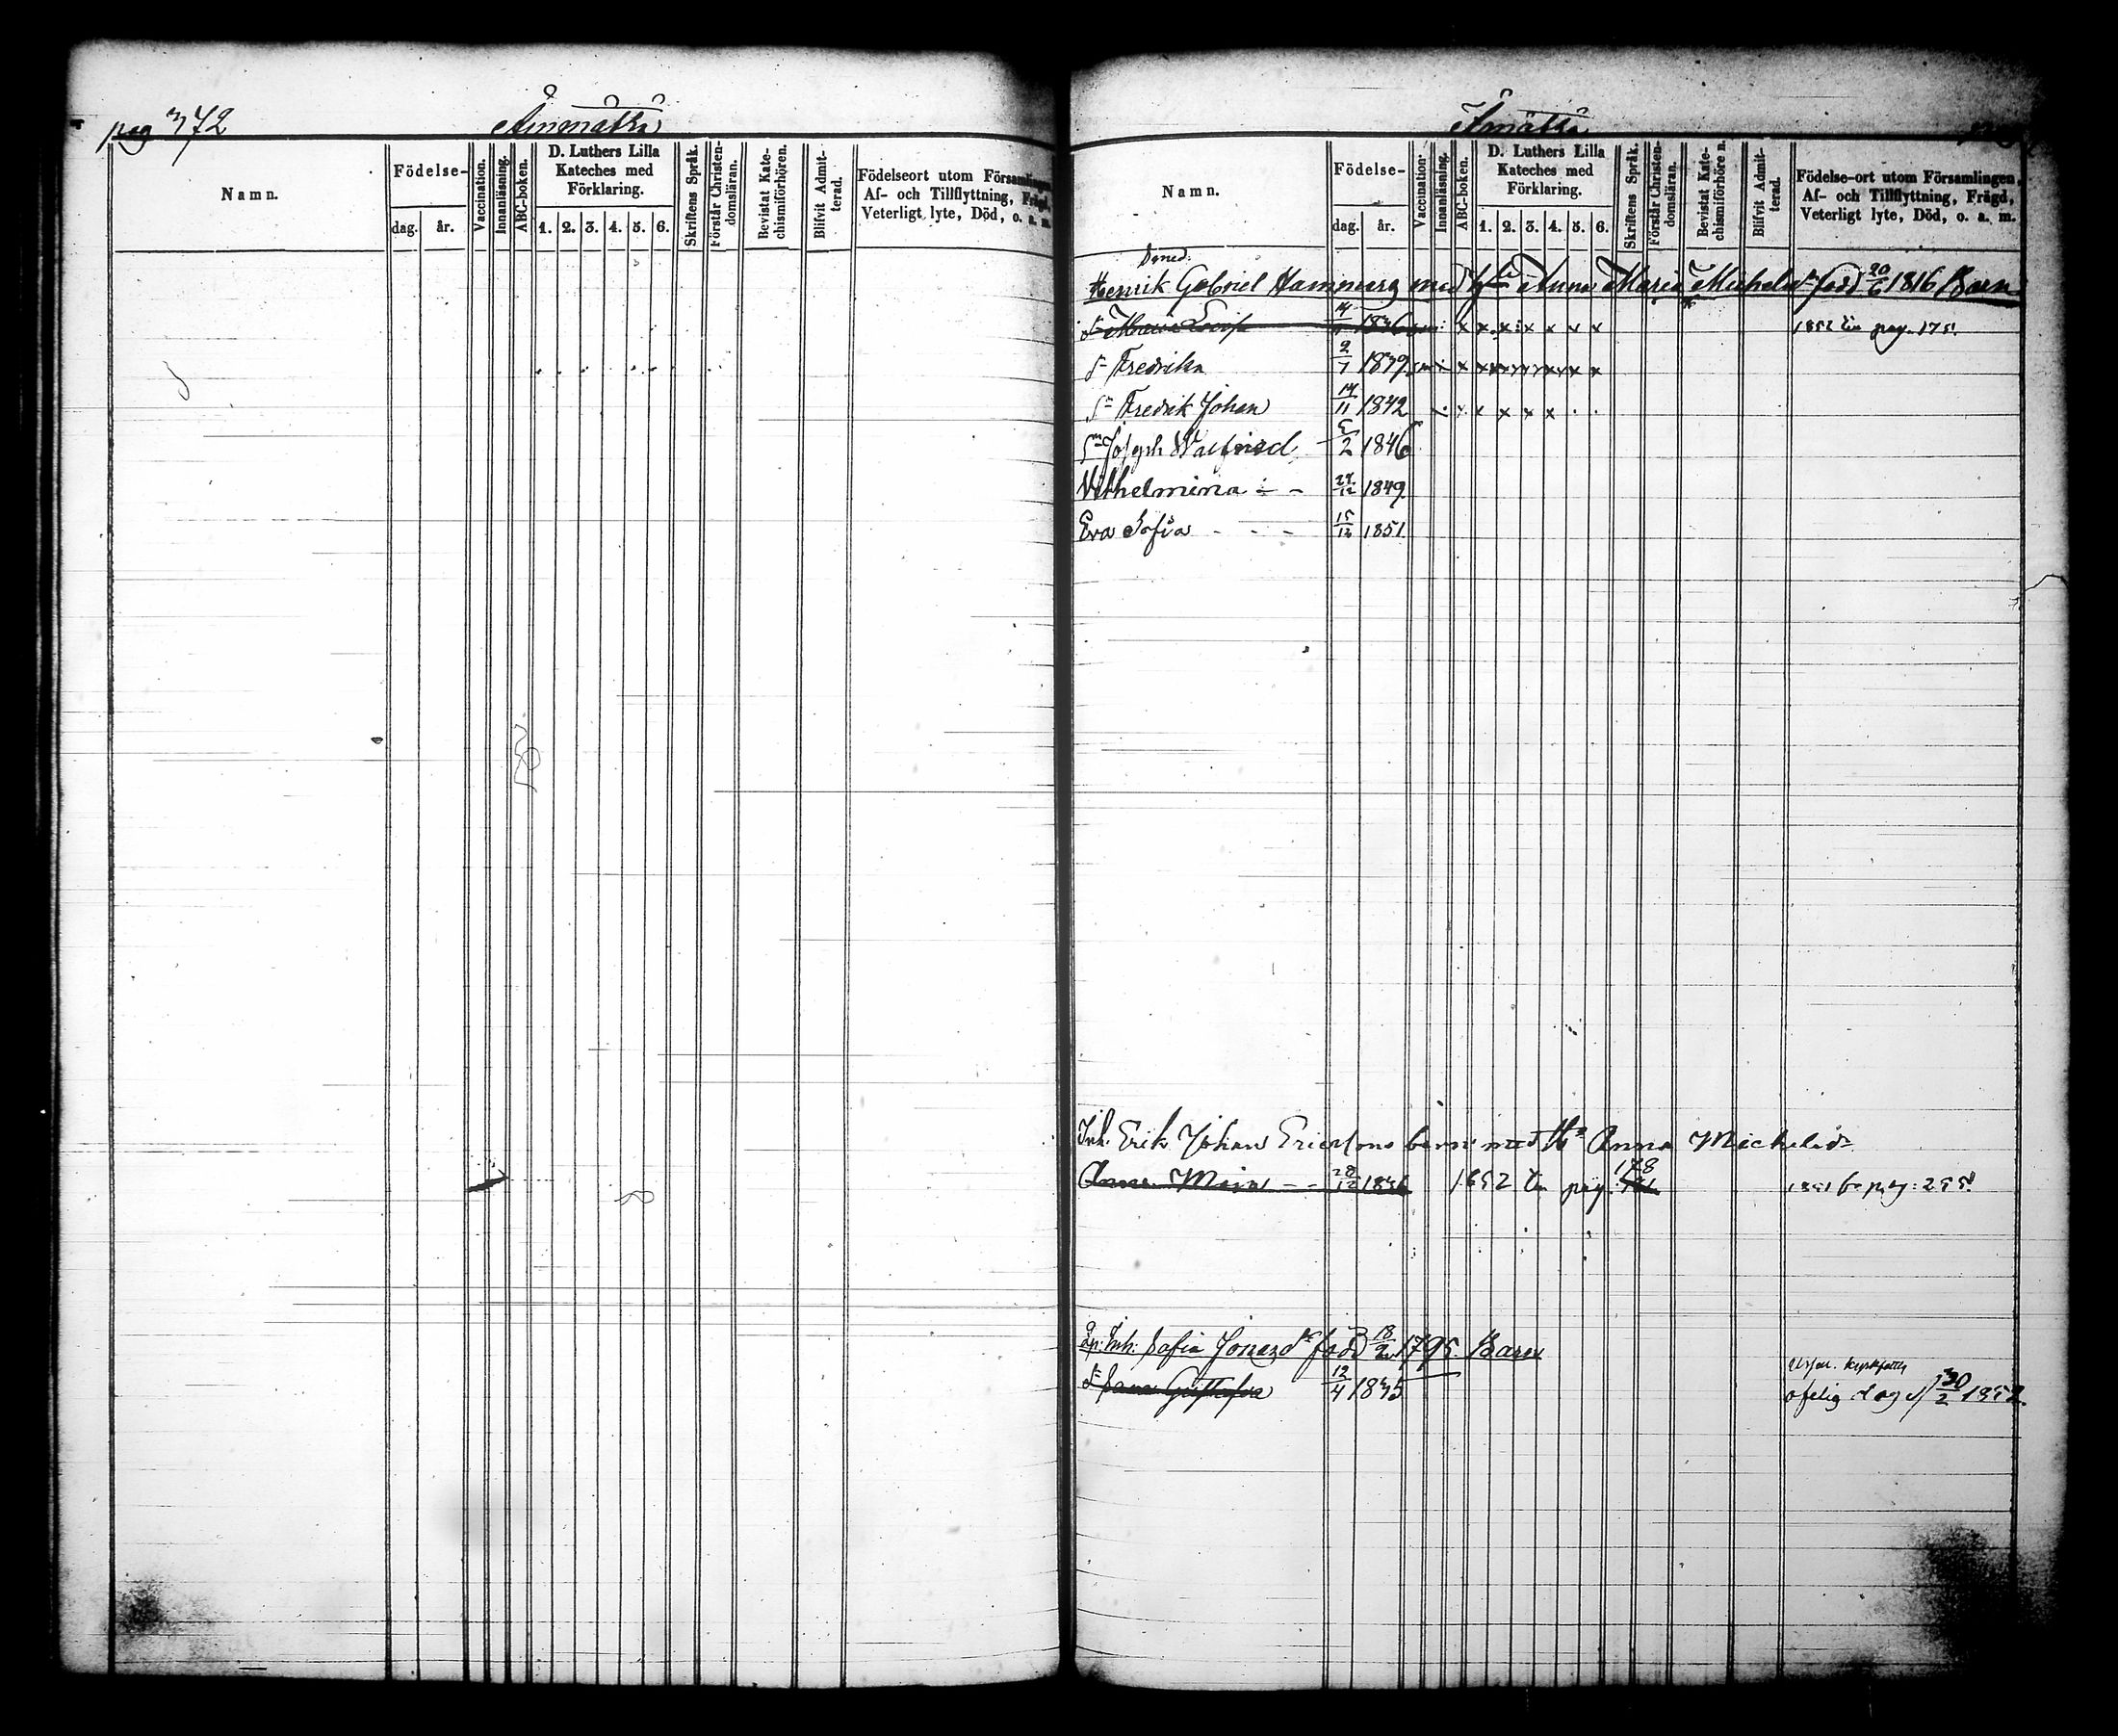 pag 372
Åmmätsä
Namn.
Födelse-
dag.
år.
Vaccination.
Innanläsning.
ABC-boken.
D. Luthers Lilla
Kateches med
Förklaring.
1. 2. 3. 4. 5. 6.
Skriftens Språk.
Förstår Christen-
domsläran.
Bevistat Kate-
chismiförhören.
Blifvit Admit-
terad.
Födelseort utom Församlingen,
Af- och Tillflyttning, Frägd,
Veterligt lyte, Död, o. a. m.
Åmätsä
Namn.
Födelse-
dag.
år.
Vaccination.
Innanläsning.
ABC-boken.
D. Luthers Lilla
Kateches med
Förklaring.
1. 2. 3. 4. 5. 6.
Skriftens Språk.
Förstår Christen-
domsläran.
Bevistat Kate-
chismiförhören.
Blifvit Admit-
terad.
Födelse-ort utom Församlingen,
Af- och Tillflyttning, Frägd,
Veterligt lyte, Död, o. a. m.
Henrik Gabriel Hammarg med Anna Maria Michelsdr född 20/6 1816 Barn
Maria Lovisa 1836 x x x x x x x 1852 till pag. 175.
Fredrika 2/7 1839
Fredrik Johan 14/11 1842
Joseph Walfried 5/2 1846
Vilhelmina 24/12 1849
Eva Sofia 15/12 1851
Inh. Erik Johan Ericssons barn med H. Anna Michelsdr
Anna Maja 28/12 1846 1852 till pag. 178 1851 fr pag: 255.
Inh: Safia Jonasdr född 18/2 1795. Barn
Gustafva 12/4 1835
ofelig dag d 20/2 1852.